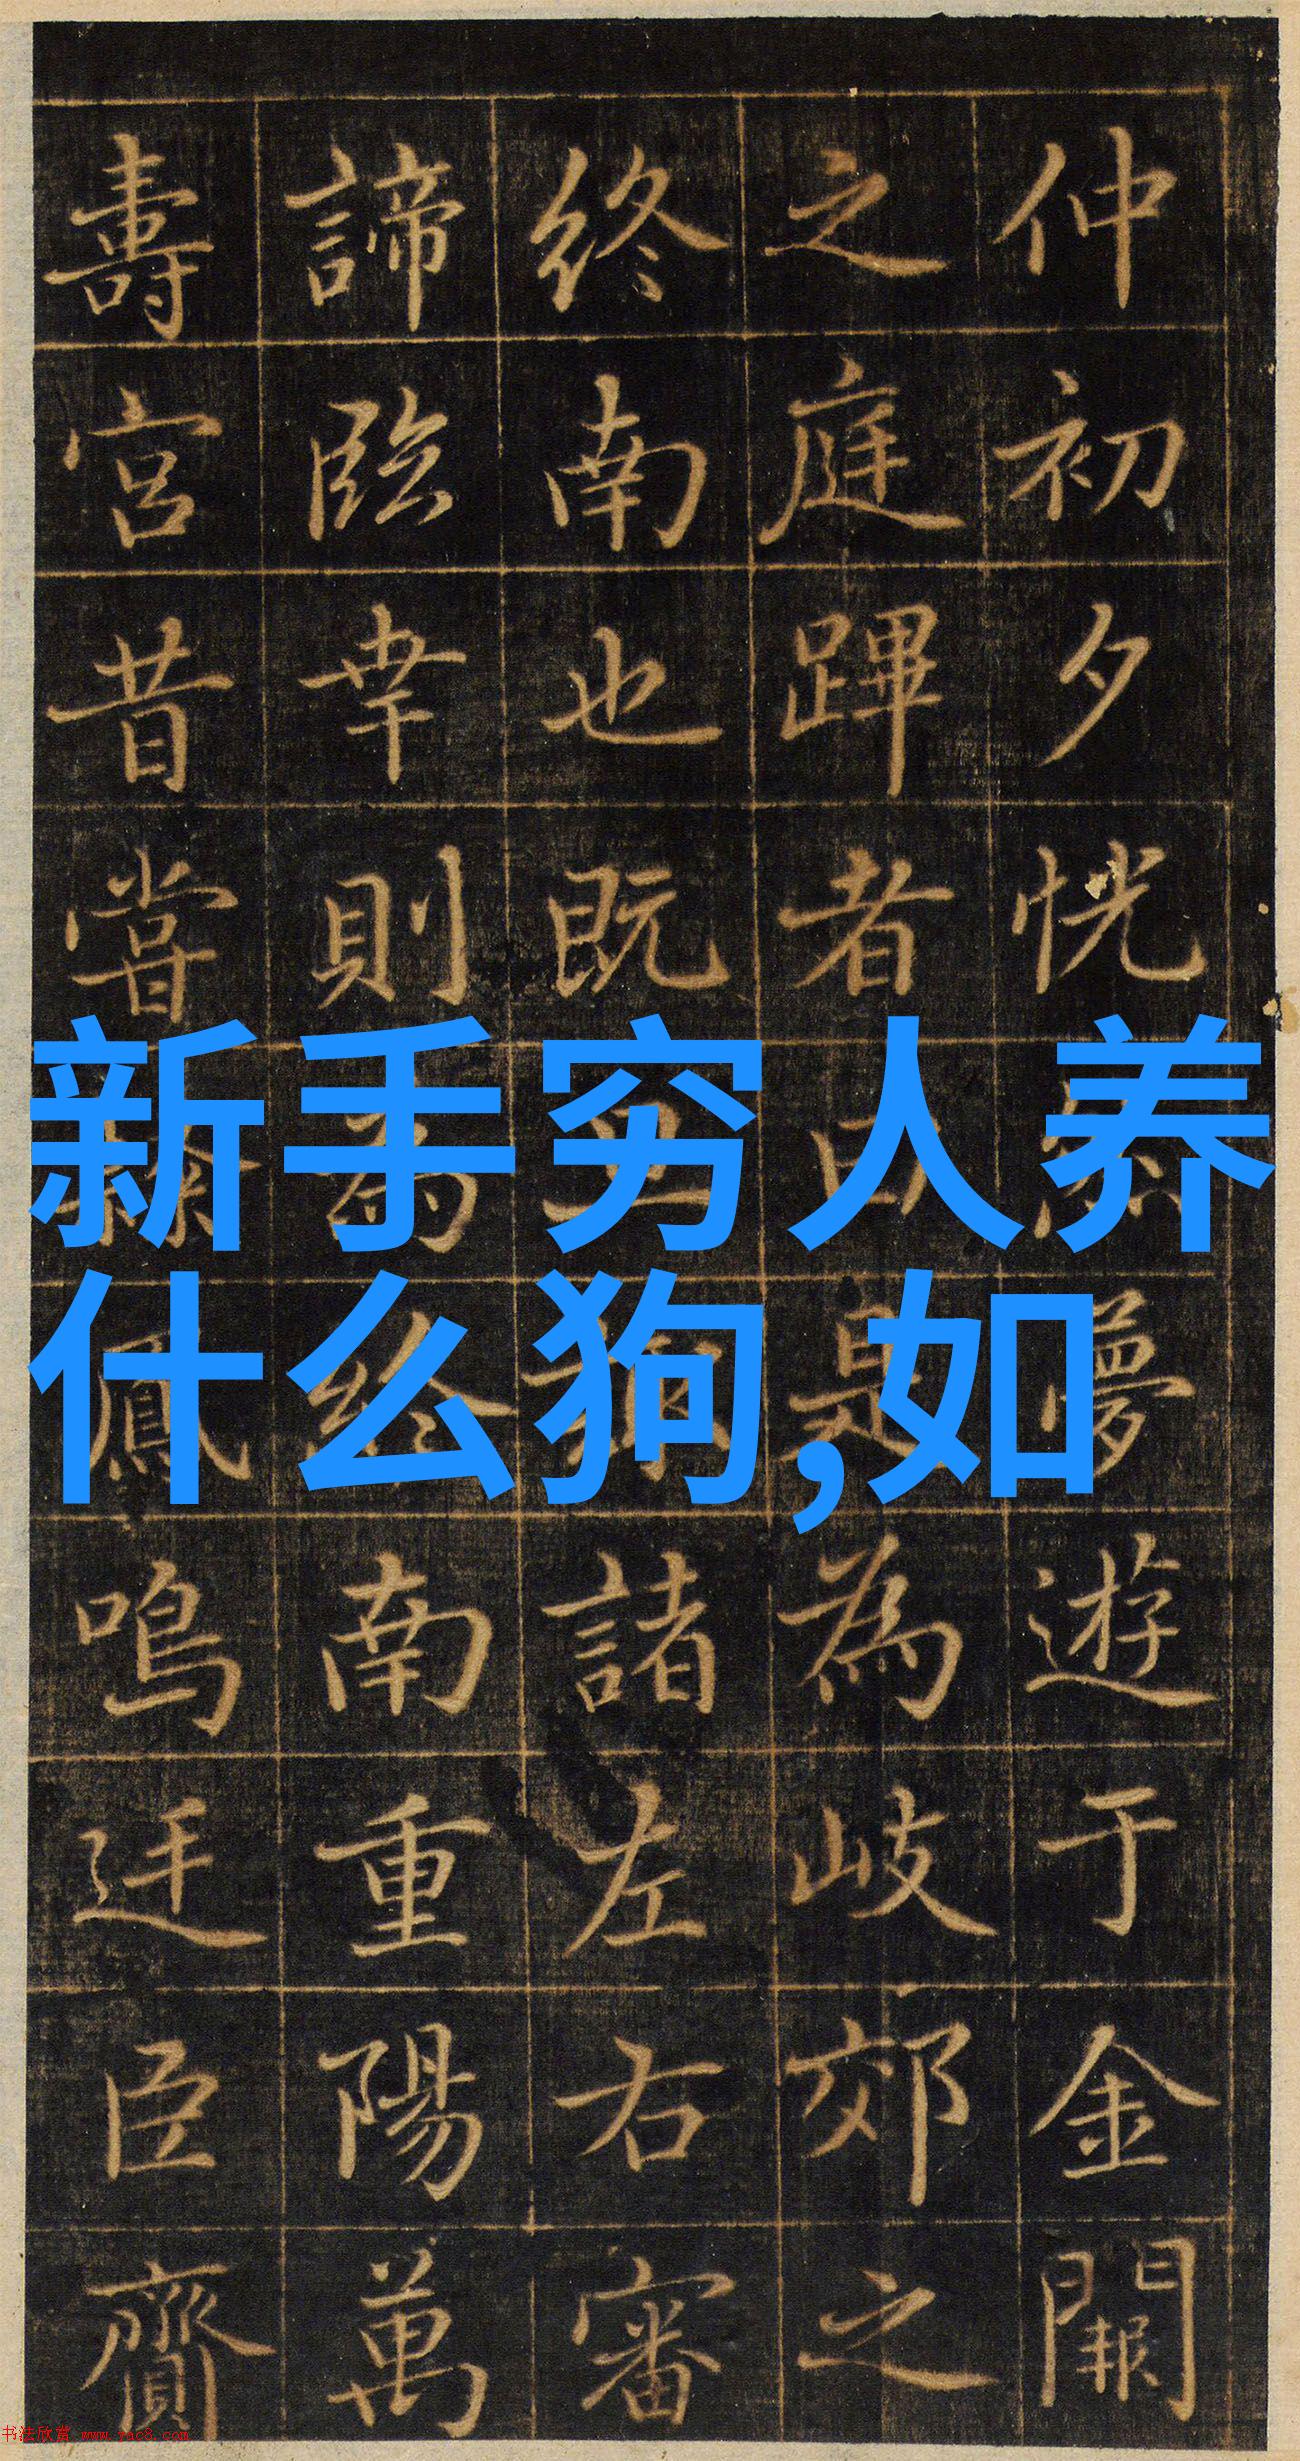 仲初夕恍遊于金闕
之庭蹕者是為岐郊之
終南也既諸左右審
諦臨幸則為終南重陽萬
壽宮昔嘗鳳鳴迋臣齎
新手穷人养
什么狗,如
书法欣赏 www.yac8.com